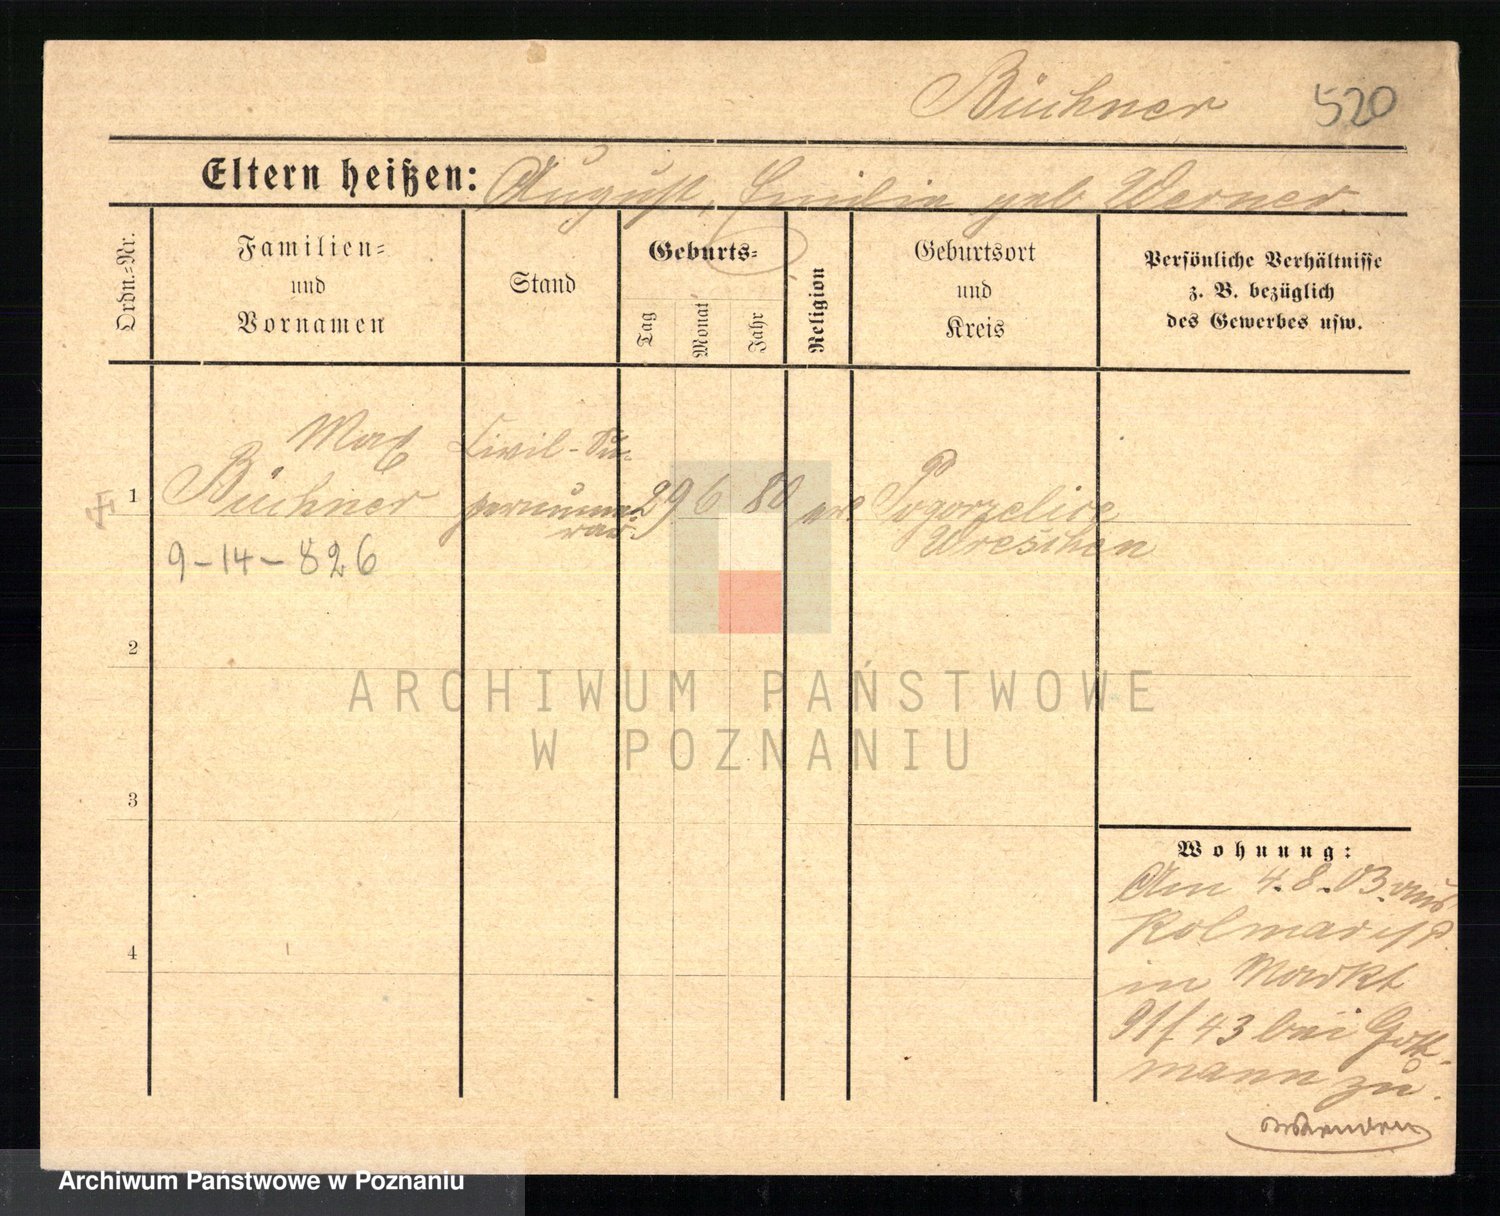 Büchner 520
Eltern heißen: August, Emilie geb Werner.
Ordn.=Nr.
Familien=
und
Vornamen
Stand
Geburts=
Tag
Monat
Jahr
Religion
Geburtsort
und
Kreis
Persönliche Verhältnisse
z. B. bezüglich
des Gewerbes usw.
Max
1 Büchner
9-14-826
Civil-Su=
pernume=
rar.
29 6 80
Pogorzelice
Wreschen
2
3
4
Wohnung:
Am 4.8.03 aus
Kolmar i/P
in Markt
43 bei Gott=
mann zu.
ARCHIWUM PAŃSTWOWE
W POZNANIU
Archiwum Państwowe w Poznaniu